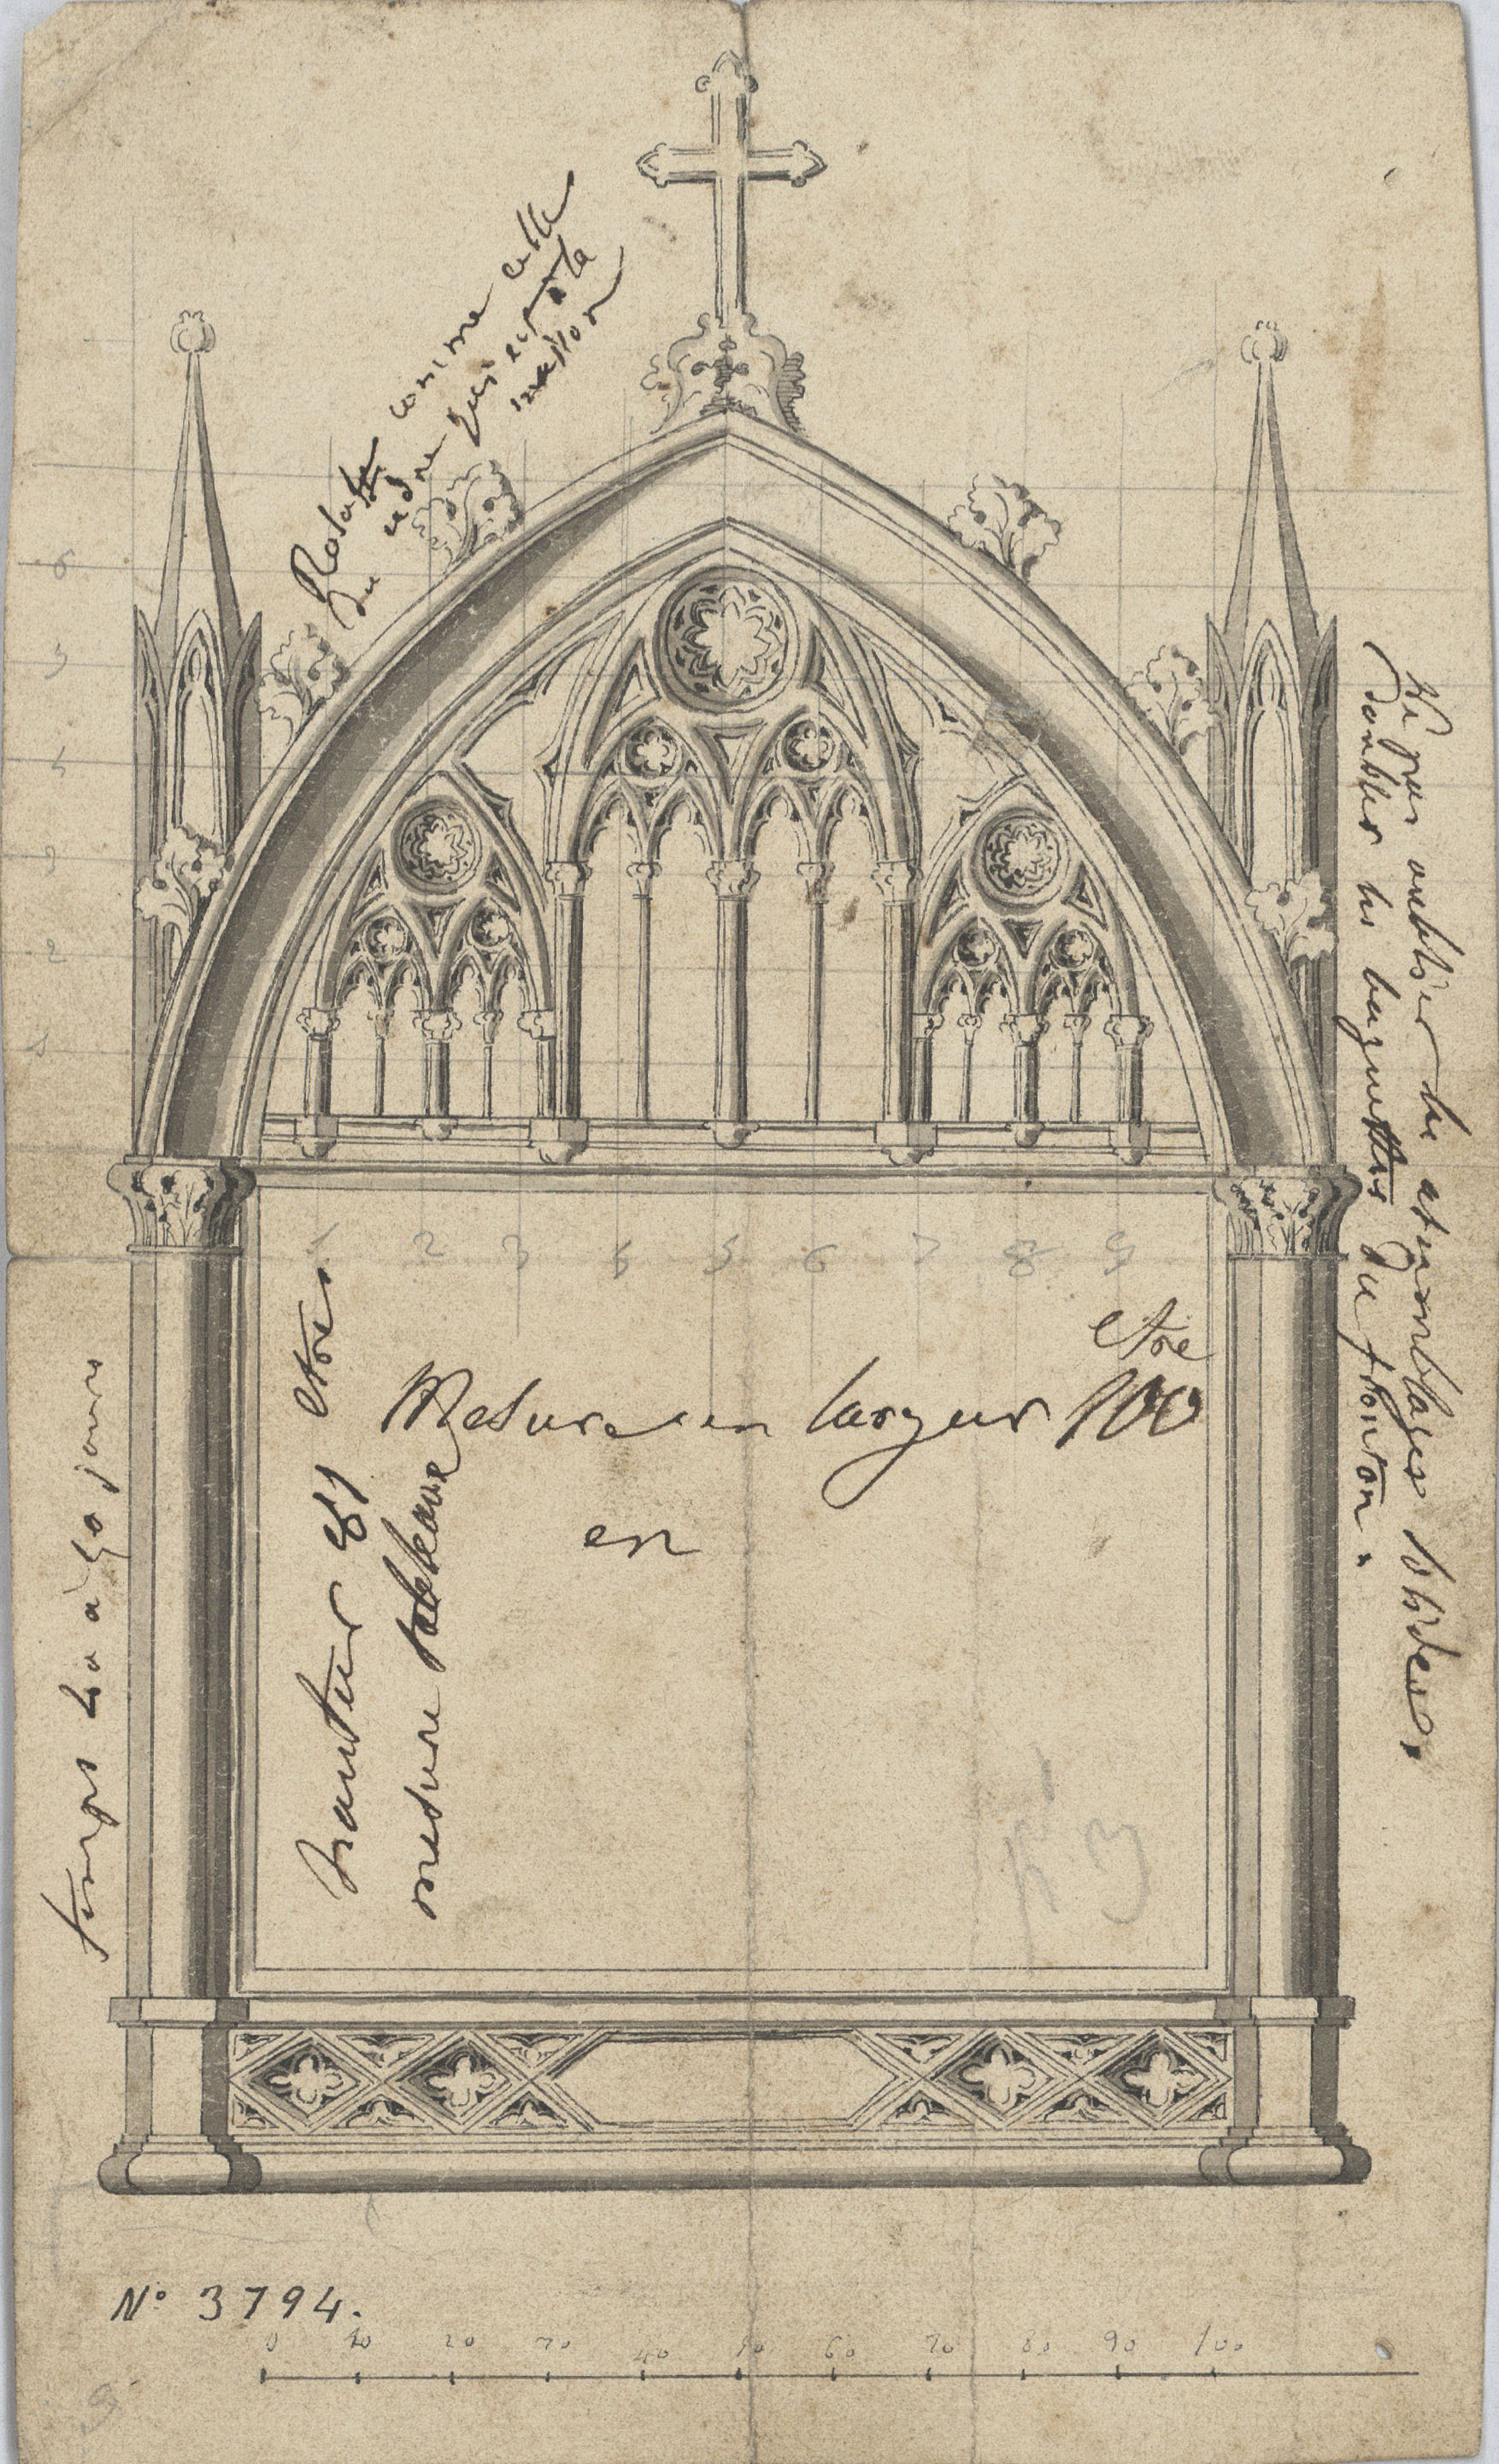 comme celle
du cadre qui est à la
maison
6
5
4
3
2
1
Ne pas oublier les assemblages solides,
doubler les baguettes du fronton.
1 2 3 4 5 6 7 8 9
etre
Mesure en largeur 100
en
hauteur 81 etre
mesure tableaux
temps 30 à 40 jours
N° 3794.
0 10 20 30 40 50 60 70 80 90 100